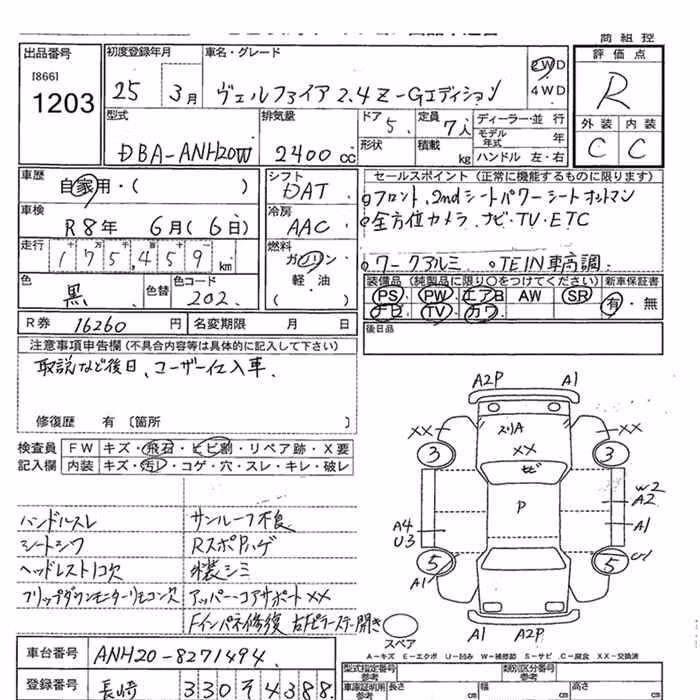 商 組 控
出品番号
[866]
1203
初度登録年月
25 3 月
車名・グレード
ヴェルファイア 2.4 Z-Gエディション
2WD
4WD
評 価 点
R
型式
DBA-ANH20W
排気量
2400 cc
ドア
5
形状
定員
7人
積載
kg
ディーラー・並 行
モデル年式 年
ハンドル 左・右
外 装 内 装
C C
車歴
自家用・( )
シフト
DAT
セールスポイント (正常に機能するものに限ります)
フロント、2ndシートパワーシートオットマン
全方位カメラ、ナビ・TV・ETC
ワークアルミ 。TEIN車高調
車検
R8年 6月(6日)
冷房
AAC
走行
十 万 千 百 十
175,459 km
燃料
ガソリン
軽 油
( )
色
黒
色替
色コード
202
装備品 (純製品に限り○をつけてください) 新車保証書
PS PW エアB AW SR
ナビ TV カワ
有・無
R券 16260 円 名変期限 月 日
後日品
注意事項申告欄(不具合内容等は具体的に記入して下さい)
取説など後日、ユーザー仕入車.
修復歴 有 〔箇所 〕
検査員
記入欄
FW キズ・飛石・ヒビ割・リペア跡・X要
内装 キズ・汚レ・コゲ・穴・スレ・キレ・破レ
ハンドルスレ サンルーフ不良
シートシワ RスポPハゲ
ヘッドレスト1コ欠 シミ
フリップダウンモニターリモコン欠 アッパー・コアサポートXX
Fインパネ修復 右Fピラーステー開き
A2P A1
XX XX
3 3
XX
P
W2
A2
A4
U3
A1
5 5
A1 U1
A1 A2P
スペア
A－キズ E－エクボ U－凹み W－補修跡 S－サビ C－腐食 XX－交換済
車台番号 ANH20-8271494
登録番号 長崎 330 そ 4388
型式指定番号
参考
類別区分番号
参考
車庫証明用
参考
長さ cm
幅 cm
高さ cm